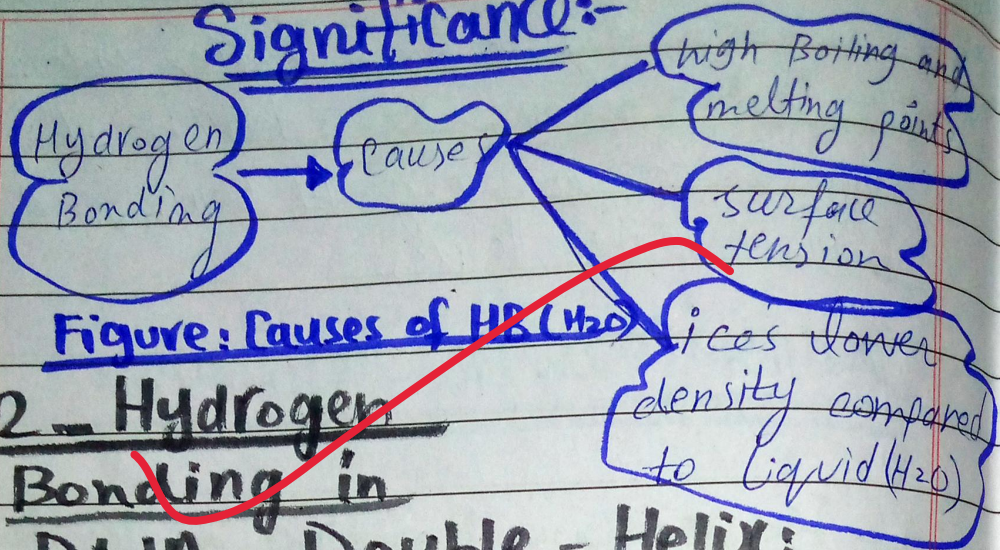 Significance:-
Hydrogen
Bonding
Causes
high Boiling and
melting points
surface
tension
ices lower
density compared
to liquid (H2O)
Figure: Causes of HB (H2O)
2- Hydrogen
Bonding in
DNA Double - Helix: